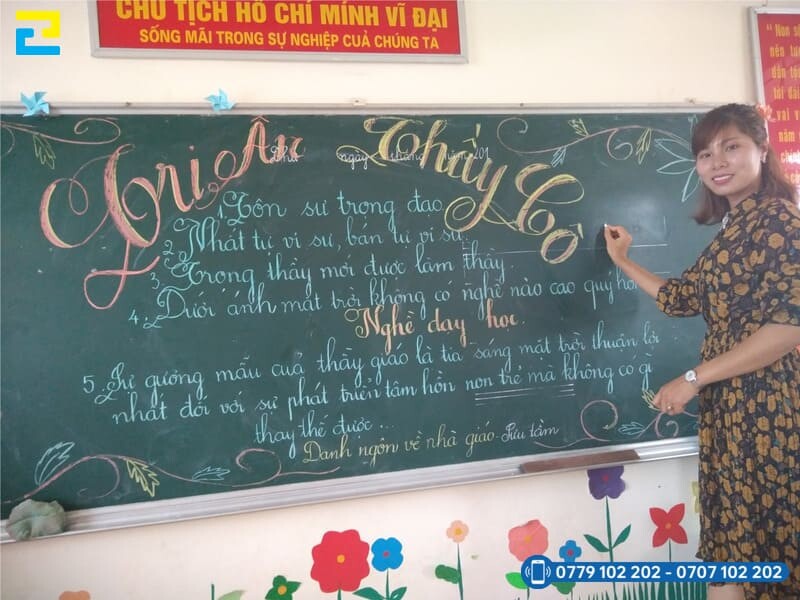 CHỦ TỊCH HỒ CHÍ MINH VĨ ĐẠI
SỐNG MÃI TRONG SỰ NGHIỆP CUẢ CHÚNG TA
"Non sô
Tri Ân Thầy Cô
Thứ ngày tháng năm 201
1. Tôn sư trọng đạo
2. Nhất tự vi sư, bán tự vi sư.
3. Trọng thầy mới được làm thầy.
4. Dưới ánh mặt trời không có nghề nào cao quý hơn
Nghề dạy học.
5. Sự gương mẫu cuả thầy giáo là tia sáng mặt trời thuận lợi
nhất đối với sự phát triển tâm hồn non trẻ mà không có gì
thay thế được...
Danh ngôn về nhà giáo - Sưu tầm
0779 102 202 - 0707 102 202